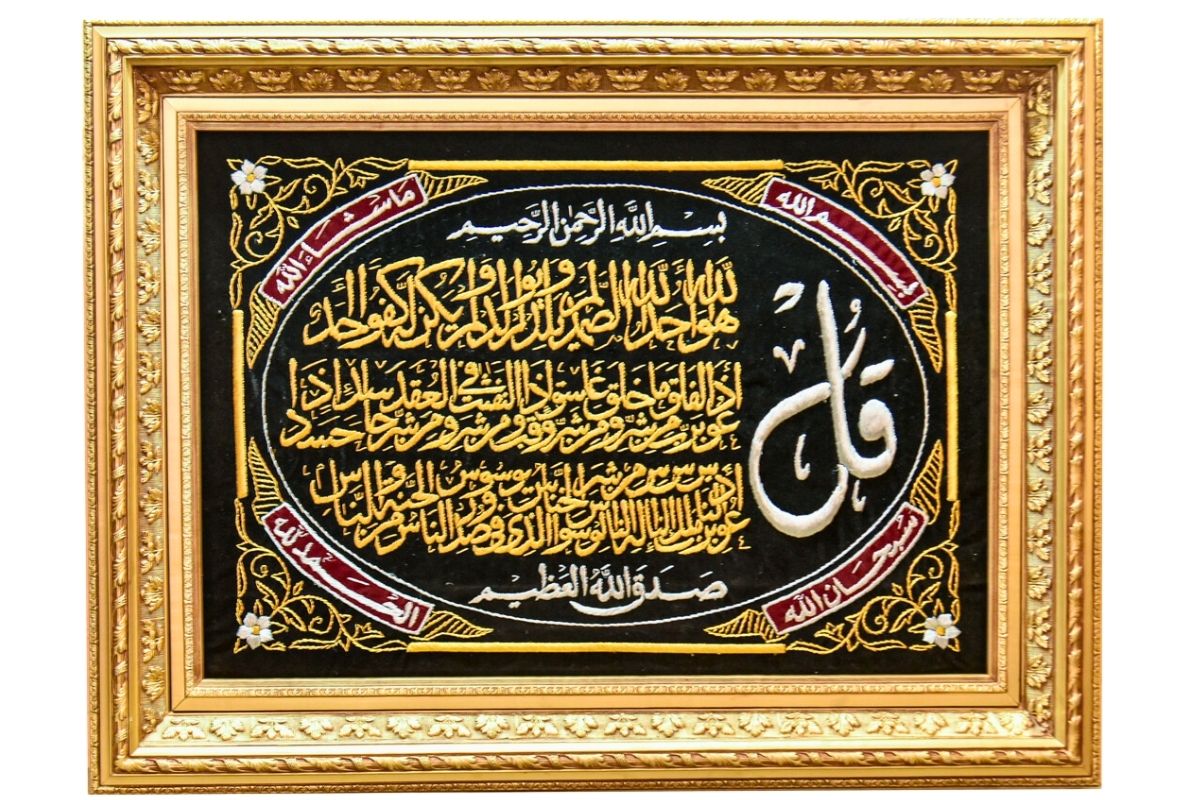 بسم الله
ما شاء الله
بِسْمِ اللَّهِ الرَّحْمٰنِ الرَّحِيمِ
قُلْ
هو الله أحد الله الصمد لم يلد ولم يولد ولم يكن له كفوا أحد
أعوذ برب الفلق من شر ما خلق ومن شر غاسق إذا وقب ومن شر النفثت في العقد ومن شر حاسد إذا حسد
أعوذ برب الناس ملك الناس إله الناس من شر الوسواس الخناس الذي يوسوس في صدور الناس من الجنة والناس
صَدَقَ اللَّهُ العَظِيم
سبحان الله
الحمد لله